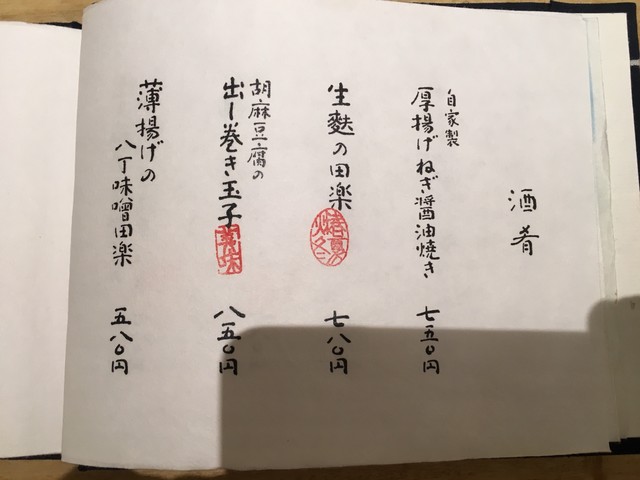 酒肴
自家製
厚揚げねぎ醤油焼き
七五〇円
生麩の田楽
七八〇円
胡麻豆腐の
出し巻き玉子
美味
八五〇円
薄揚げの
八丁味噌田楽
五八〇円